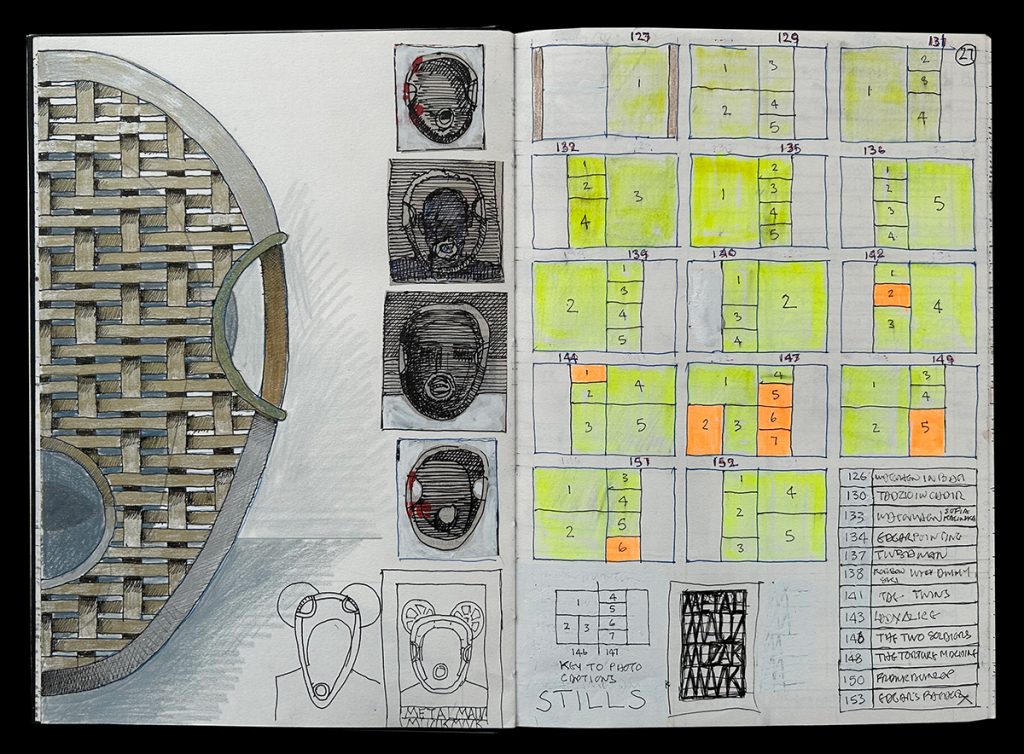 METAL
127 129 131 27
1
1 3 2 4 5
1 2 3 4
132 135 136
1 2 4 3
1 2 3 4 5
1 2 3 4 5
139 140 142
2 1 3 4 5
1 3 4 2
1 2 3 4
144 147 149
1 2 3 4 5
1 2 3 4 5 6 7
1 2 3 4 5
151 152
1 2 3 4 5 6
1 2 3 4 5
126 IN BAR
130 TADZIO IN CHAIR
133 SOFIA
134 EDGAR POINTING
137
138 WITH DUMMY
141 THE TWINS
143 LADY ALICE
THE TWO SOLDIERS
148 THE TORTURE MACHINE
150 FRANK DUNLOP
153 EDGAR'S
1 2 3 4 5 6 7
146 147
KEY TO PHOTO
CAPTIONS
STILLS
METAL
MUZAK